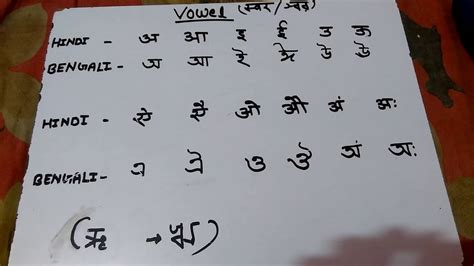 Vowel (स्वर/স্বর)
HINDI - अ आ इ ई उ ऊ
BENGALI - অ আ ই ঈ উ ঊ
HINDI - ए ऐ ओ औ अं अः
BENGALI - এ ঐ ও ঔ অं অঃ
(ऋ → ঋ)